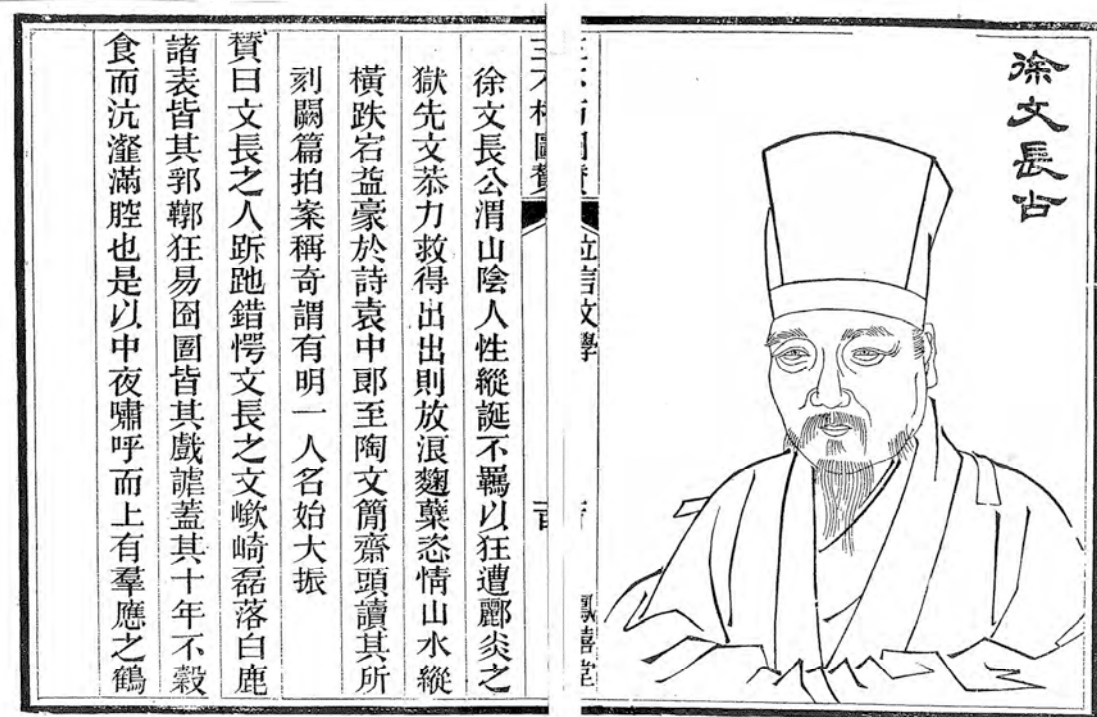 徐文長
立言文學
鳳嬉堂
三不朽圖贊
徐文長公渭山陰人性縱誕不羈以狂遭酈炎之
獄先文恭力救得出出則放浪麴蘖恣情山水縱
橫跌宕益豪於詩袁中郎至陶文簡齋頭讀其所
刻闕篇拍案稱奇謂有明一人名始大振
贊曰文長之人跅跎錯愕文長之文嶔崎磊落白鹿
諸表皆其郛鞹狂易囹圄皆其戲謔蓋其十年不穀
食而沆瀣滿腔也是以中夜嘯呼而上有羣應之鶴